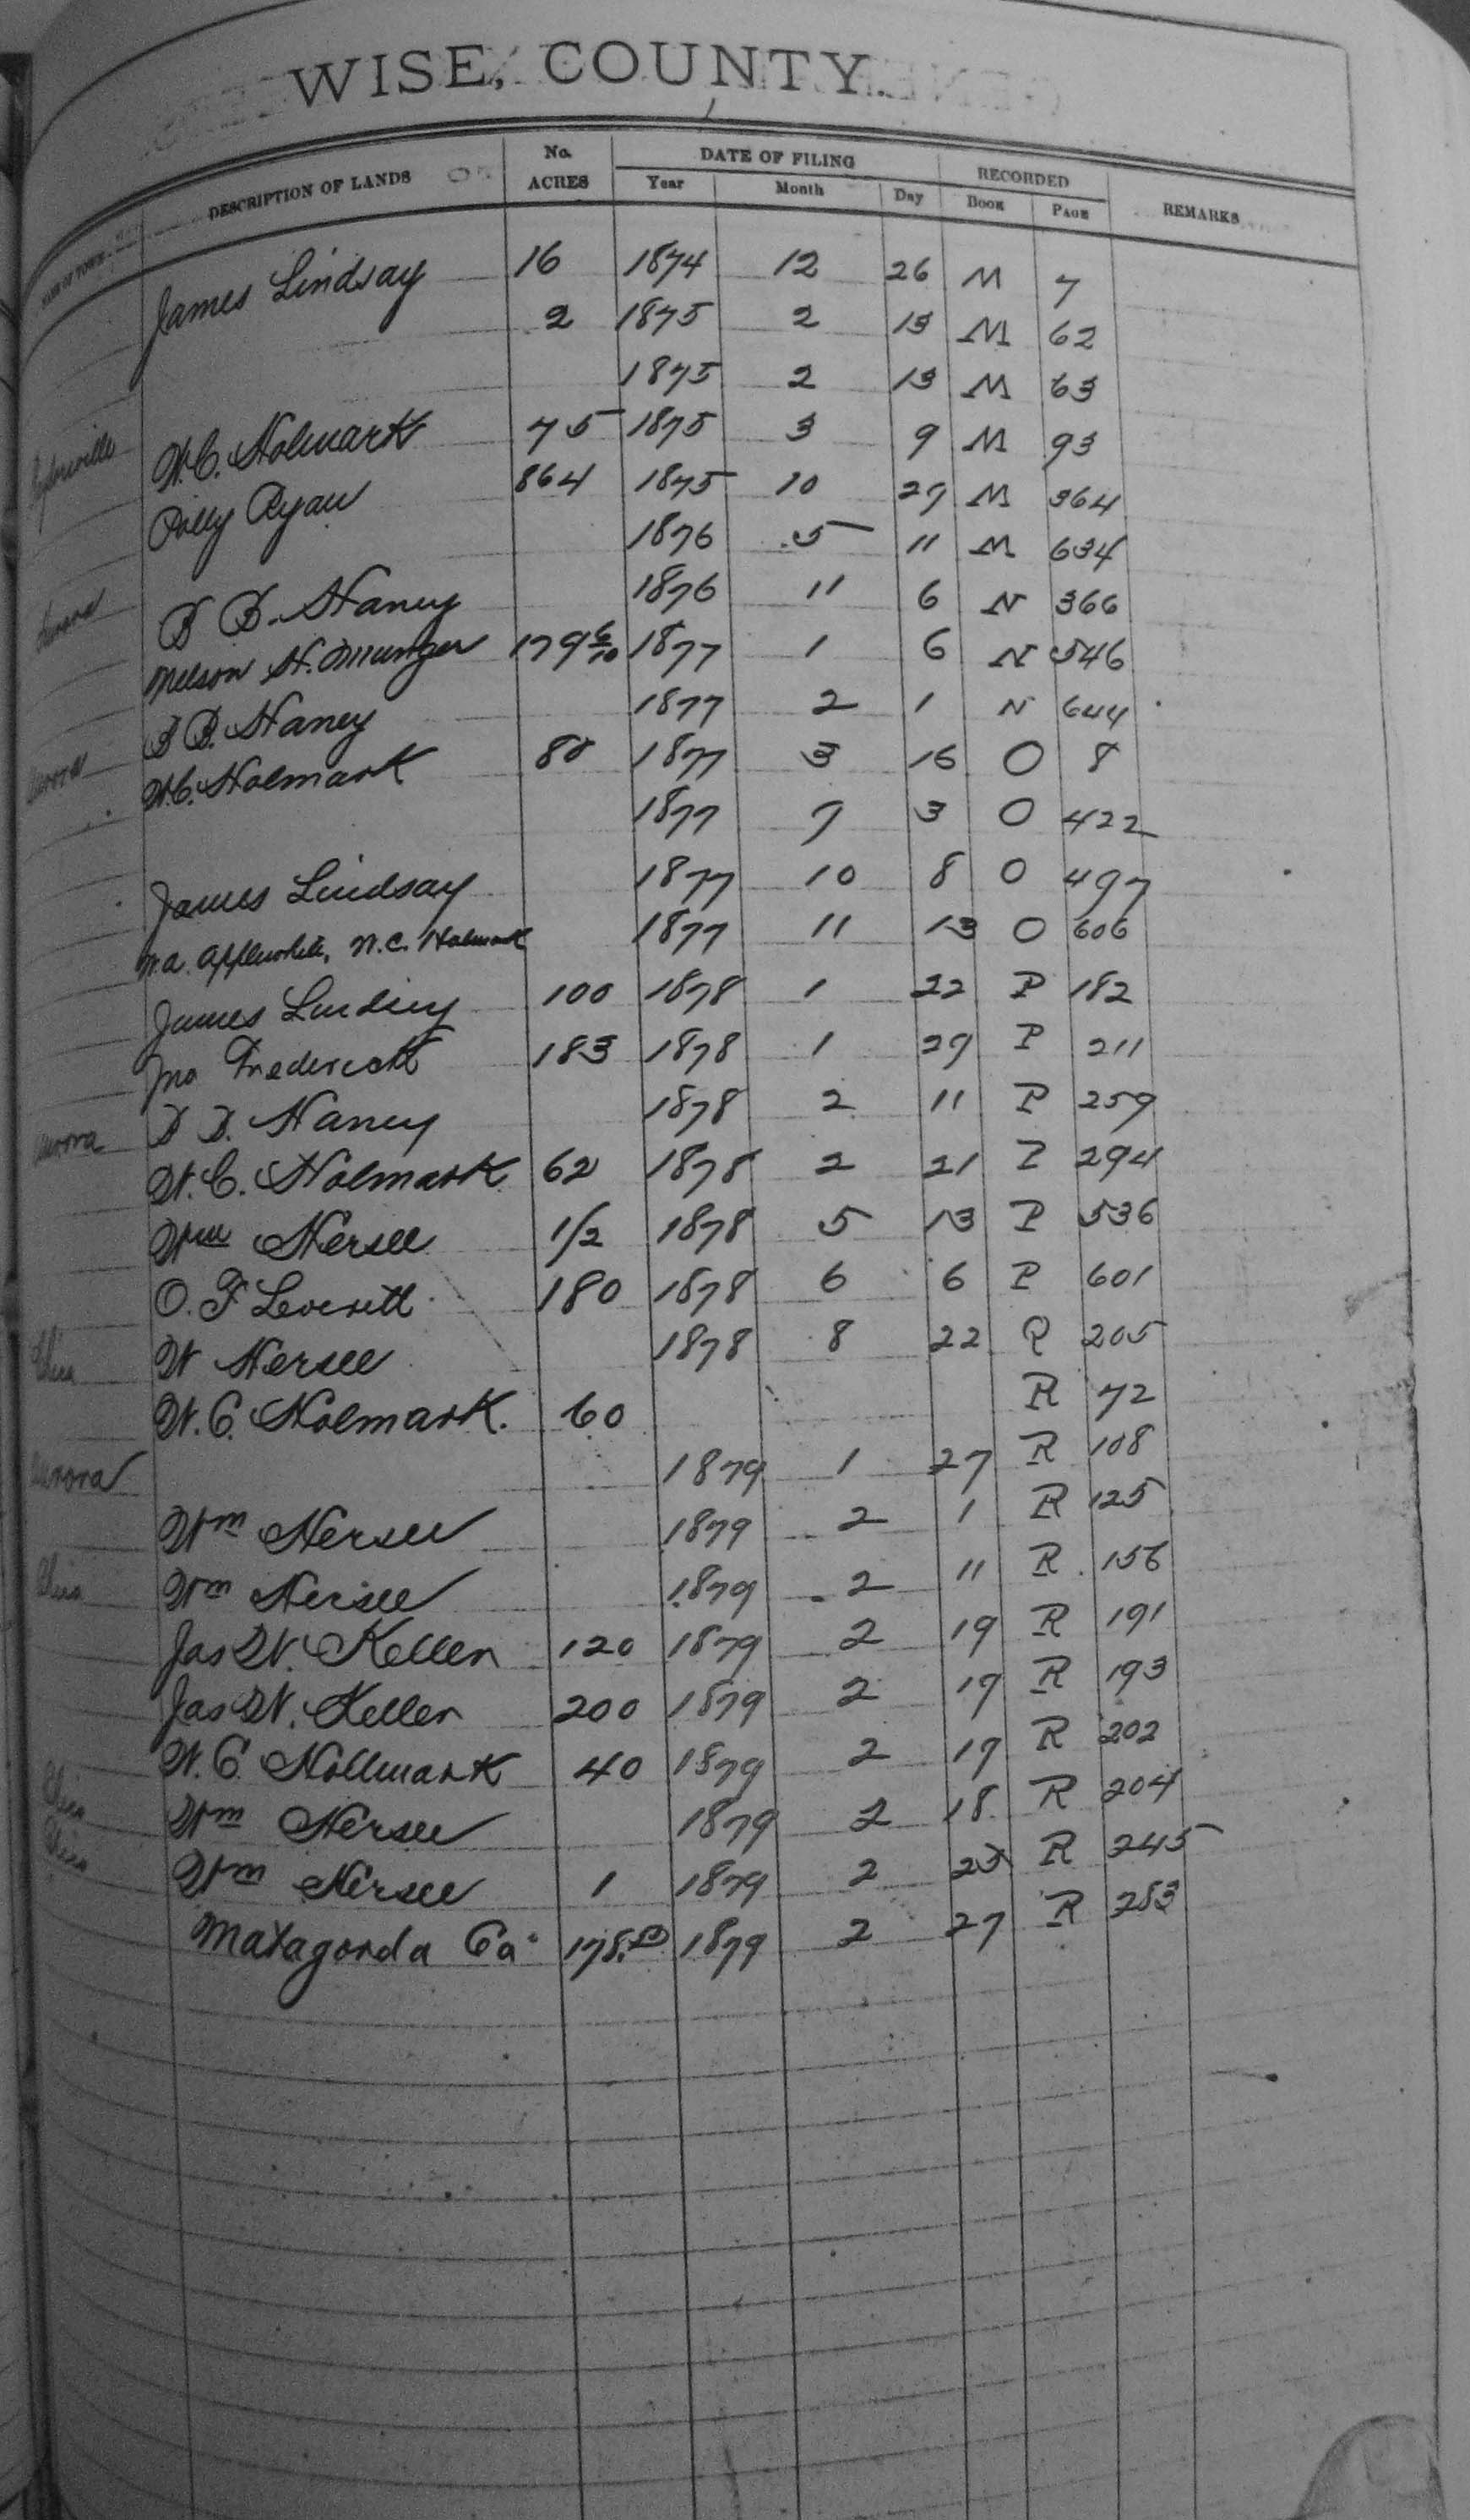 WISE, COUNTY.
DESCRIPTION OF LANDS No. ACRES DATE OF FILING RECORDED REMARKS
Year Month Day Book Page
James Lindsay 16 1874 12 26 M 7
2 1875 2 13 M 62
1875 2 13 M 63
W.C. Holmark 75 1875 3 9 M 93
Polly Ryan 864 1875 10 27 M 364
1876 5 11 M 634
B B. Haney 1876 11 6 N 366
Nelson H. Munger 179 6/10 1877 1 6 N 546
B B. Haney 1877 2 1 N 644
W.C. Holmark 80 1877 3 16 O 8
1877 7 3 O 422
James Lindsay 1877 10 8 O 497
W.A. Applewhite, W.C. Holmark 1877 11 13 O 606
James Lindsey 100 1878 1 22 P 182
Jno Frederick 183 1878 1 29 P 211
Aurora B B. Haney 1878 2 11 P 259
W.C. Holmark 62 1878 2 21 P 294
Wm Hersee 1/2 1878 5 13 P 536
O. F Leverett 180 1878 6 6 P 601
W Hersee 1878 8 22 Q 205
W.C. Holmark. 60 R 72
Aurora 1879 1 27 R 108
Wm Hersee 1879 2 1 R 125
Wm Hersee 1879 2 11 R 156
Jas W. Keller 120 1879 2 19 R 191
Jas W. Keller 200 1879 2 19 R 193
W.C. Hollmark 40 1879 2 19 R 202
Wm Hersee 1879 2 18 R 204
Wm Hersee 1 1879 2 25 R 245
Matagorda Co 1879 2 27 R 253